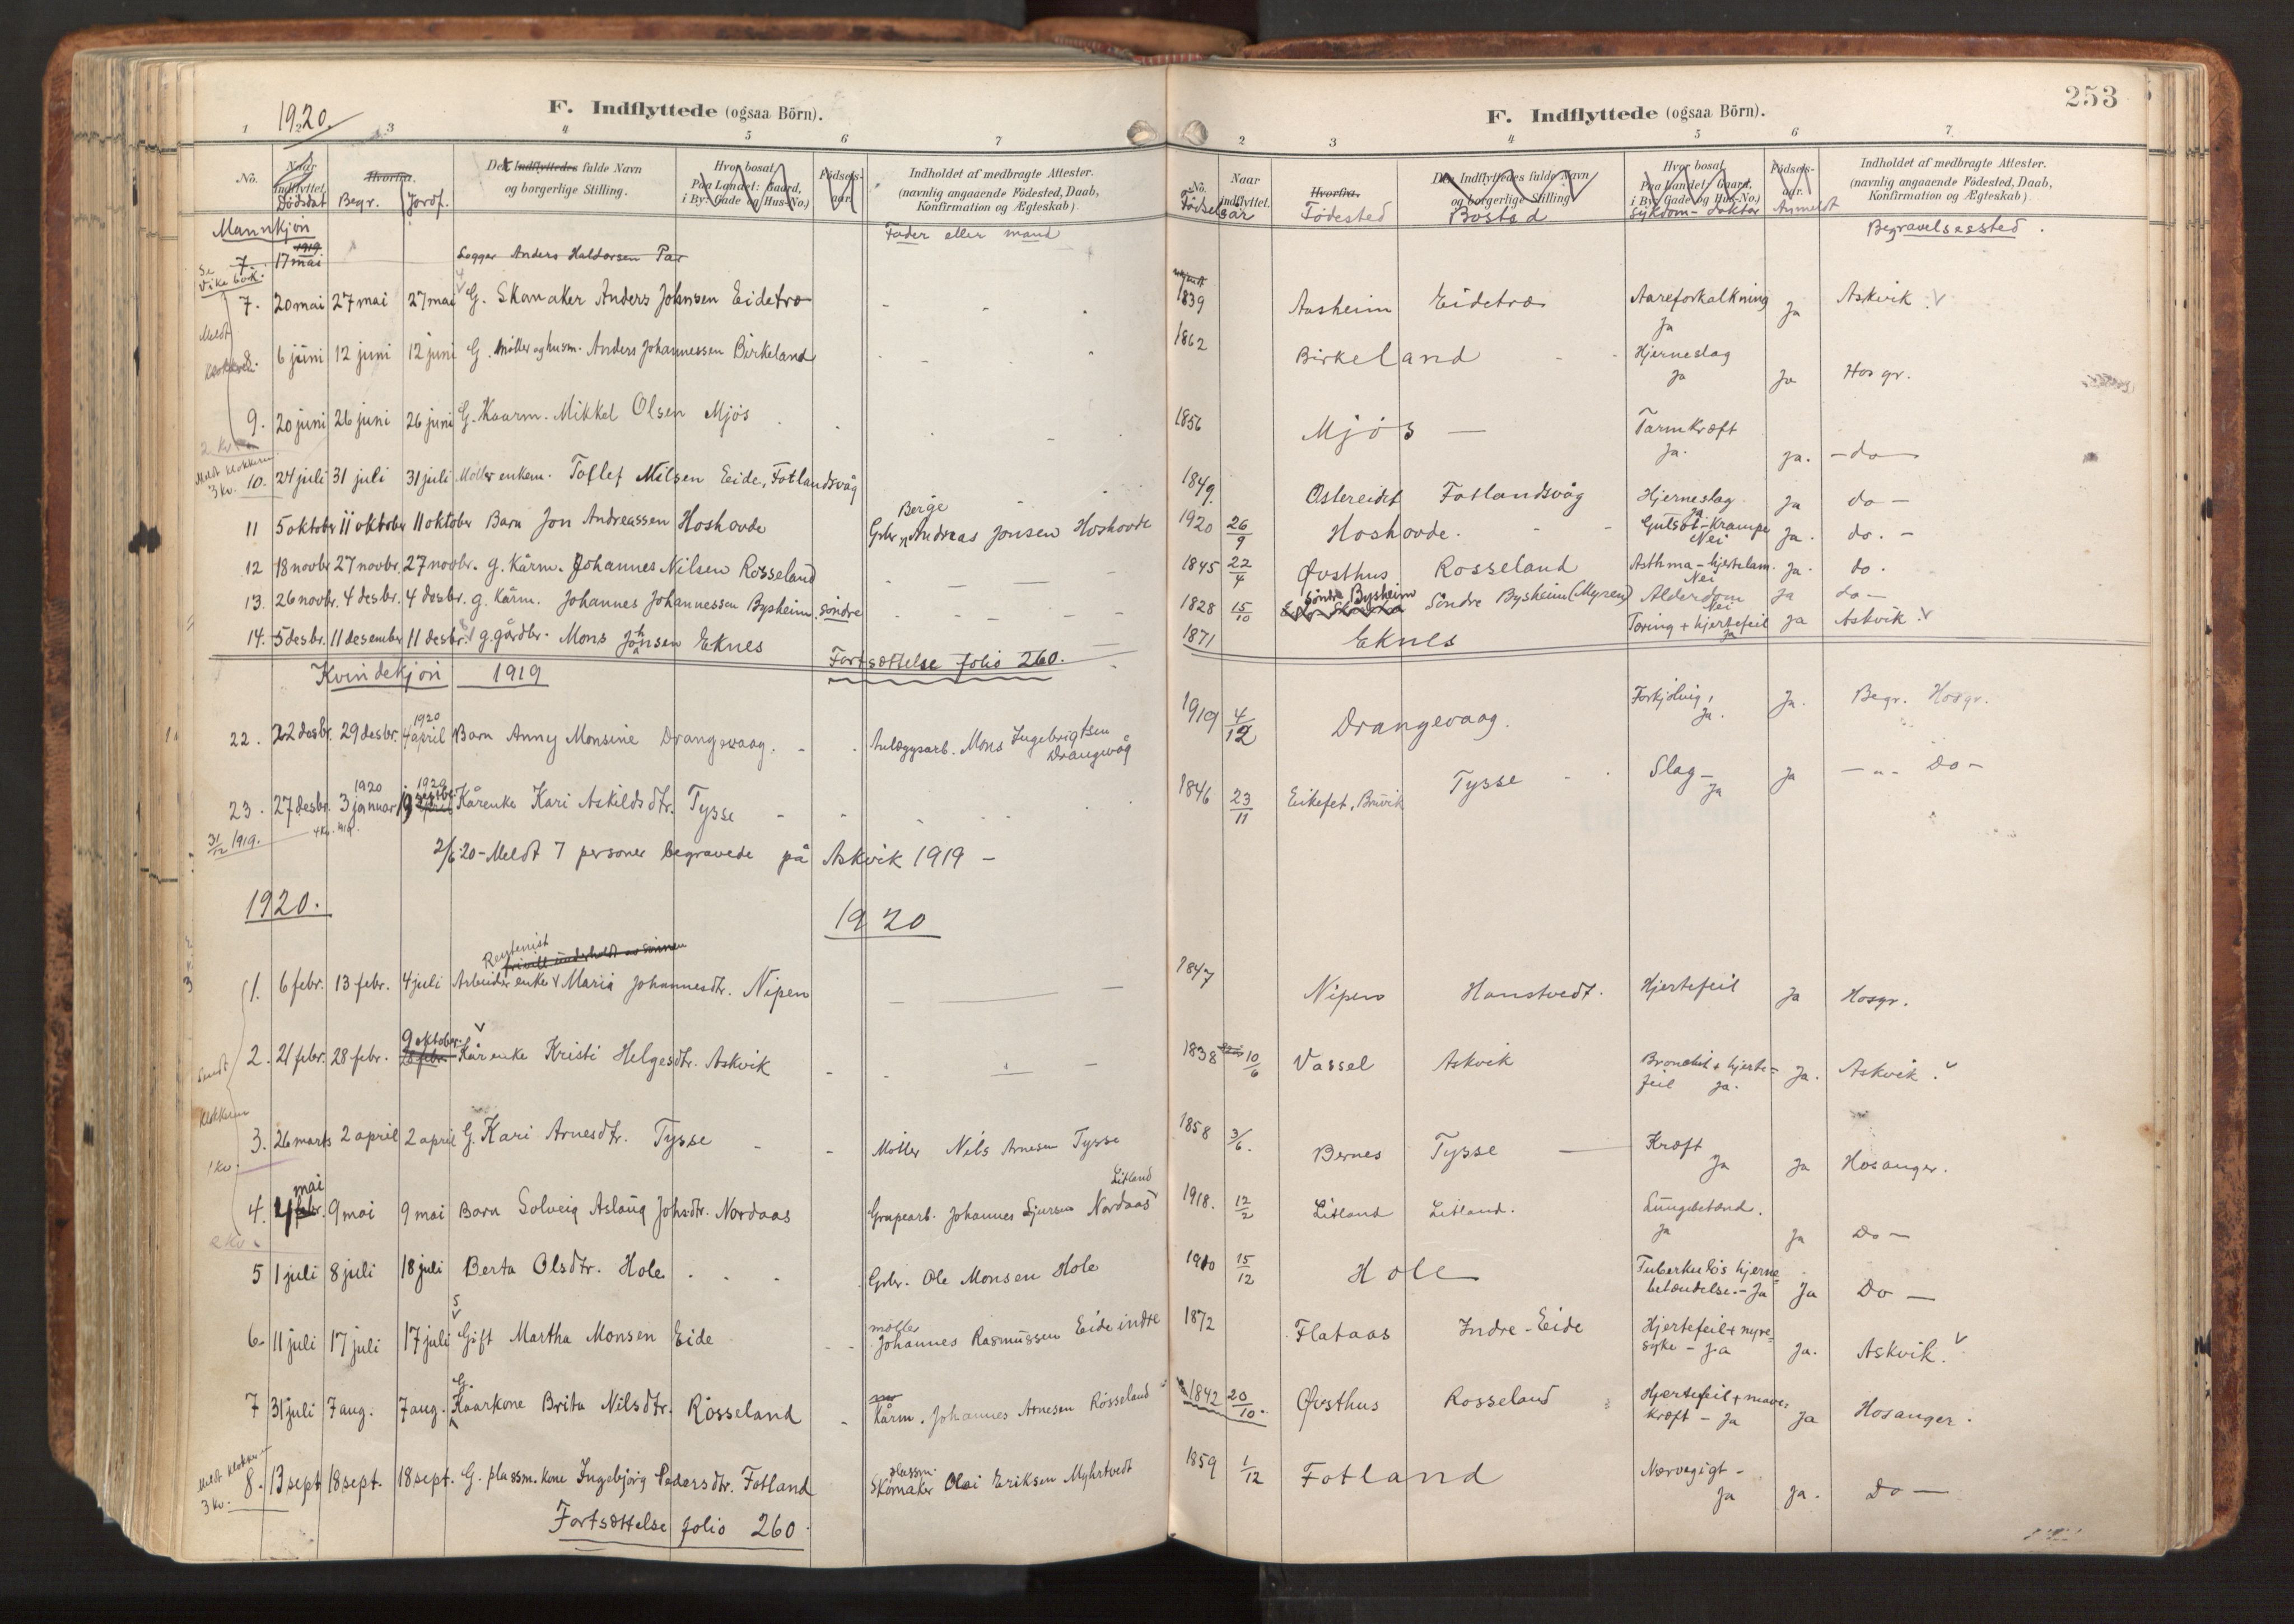 1920.
F. Indflyttede (ogsaa Börn).
1 2 3 4 5 6 7
No. Naar Indflyttet. Dödsdat Hvorfra. Begr. Jordf. Den Indflyttedes fulde Navn og borgerlige Stilling. Hvor bosat Paa Landet: Gaard, i By: Gade og Hus-No.) Födsels-aar. Indholdet af medbragte Attester. (navnlig angaaende Födested, Daab, Konfirmation og Ægteskab)
Mannkjön
Fader eller mand
7. 1919 17 mai Legger Anders Haldorsen
7. 20 mai 27 mai 27 mai G. Skomaker Anders Johnsen Eidetræ
Meldt
8. 6 juni 12 juni 12 juni G. Möller og husm. Anders Johannessen Birkeland
9. 20 juni 26 juni 26 juni G. Kaarm. Mikkel Olsen Mjös
2 kv.
Meldt klokkeren 3 kv. 10. 24 juli 31 juli 31 juli Möller enkem. Toflef Nilsen Eide, Fotlandsvåg
11 5 oktober 11 oktober 11 oktober Barn Jon Andreassen Hoshovde Grbr. Andreas Jonsen Berge Hoshovde
12 18 novbr. 27 novbr. 27 novbr. g. Kårm. Johannes Nilsen Rosseland
13. 26 novbr. 4 desbr. 4 desbr. g. Kårm. Johannes Johannessen Bysheim söndre
14. 5 desbr. 11 desember 11 desbr. g. gårdbr. Mons Johnsen Eknes
Fortsættelse folio 260.
Kvindekjön 1919
22. 22 desbr. 29 desbr. 1920 4 april Barn Anny Monsine Drangevaag. Anlægsarb. Mons Ingebrigtsen Drangevåg
23. 27 desbr. 1920 3 januar 1920 Kårenke Kari Askildsdtr. Tysse
31/12 1919.
2/6 20 - Meldt 7 personer begravede på Askvik 1919 -
1920. 1920
Reptenist
privatt underholdt av sönnen
1. 6 febr. 13 febr. 4 juli Arbeider enke Maria Johannesdtr. Nipen
2. 21 febr. 28 febr. 9 oktober 28 febr. Kårenke Kristi Helgesdtr. Askvik
Sendt
klokkeren
3. 26 marts 2 april 2 april G. Kari Arnesdtr. Tysse Möller Nils Arnesen Tysse
1 kv.
4. 2 mai febr. 9 mai 9 mai Barn Solveig Aslaug Johsdtr. Nordaas Grupearb. Johannes Sjursen Nordaas Litland
2 kv.
5 1 juli 8 juli 18 juli Berta Olsdtr. Hole Grbr. Ole Monsen Hole
6. 11 juli 17 juli 17 juli Gift Martha Monsen Eide möller Johannes Rasmussen Eide indre
7 31 juli 7 aug. 7 aug. G. Kaarkone Brita Nilsdtr. Rosseland Kårm. Johannes Arnesen Rosseland
Meldt klokkeren 3 kv. 8. 13 sept 18 sept. 18 sept. G. plassm. kone Ingebjörg Pedersdtr. Fotland plassm. Skomaker Olai Eriksen Myhrtvedt
Fortsættelse folio 260.
253
F. Indflyttede (ogsaa Börn).
2 3 4 5 6 7.
No. Födselsaar Naar indflyttet. Hvorfra. Födested Den Indflyttedes fulde Navn og borgerlige Stilling. Bosted Hvor bosat Paa Landet: Gaard, i By: Gade og Hus-No.) Sykdom - doktor Födsels-aar. Anmeldt Indholdet af medbragte Attester. (navnlig angaaende Födested, Daab, Konfirmation og Ægteskab).
Begravelsessted.
1839 Aasheim Eidetræ Aareforkalkning Ja Ja Askvik
1862 Birkeland Hjerneslag Ja Ja Hosgr.
1856 Mjös - Tarmkræft Ja. Ja. - do -
1849. Ostereidet Fotlandsvåg Hjerneslag Ja Ja do -
1920 26/9 Hoshovde. Gulsot - Krampe Nei Ja. do. -
1845 22/4 Øvsthus Rosseland Asthma - hjertelam. Nei Ja. do.
1828 15/10 Söndre Bysheim Söndre Bysheim (Myren) Alderdom Nei Ja do -
1871 Eknes Tæring + hjertefeil Ja Ja Askvik
1919 4/12 Drangevaag. Forkjölnig, Ja. Ja. Begr. Hosgr.
1846 23/11 Eikefet, Bruvik Tysse Slag - Ja Ja - " - Do -
1847 Nipen Hanstvedt. Hjertefeil Ja Hosgr.
1838 10/6 Vassel Askvik Bronchit + hjertefeil Ja. Ja. Askvik.
1858 3/6. Bernes Tysse Kræft Ja Ja Hosanger.
1918. 12/2 Litland Litland. Lungebetænd. Ja Ja Do -
1910 15/12 Hole Tuberkulös hjernebetændelse. - Ja Ja Do -
1872 Flataas Indre-Eide Hjertefeil + nyresyke - Ja Ja. Askvik.
1842 20/10. Øvsthus Rosseland Hjertefeil + mavekræft - Ja Ja Hosanger.
1859 1/12 Fotland Nervegigt - Ja Ja. Do -